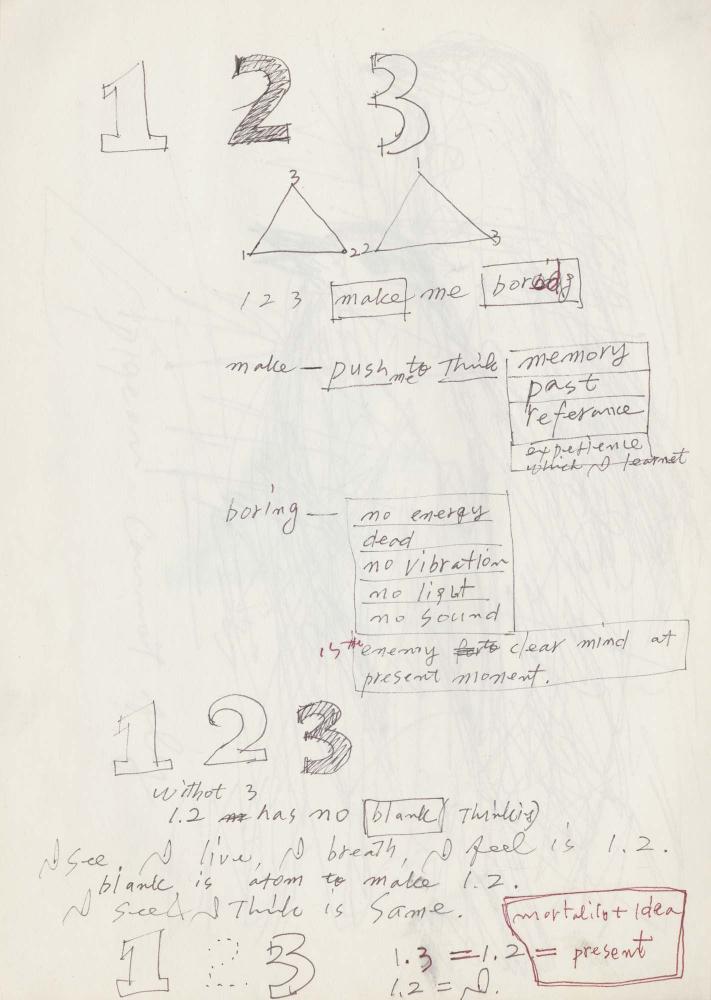 1 2 3
3 1
1 2 2 3
1 2 3 make me boring
make — push me to Think memory
past
referance
experience
which I learnet
boring — no energy
dead
no vibration
no light
no sound
is the enemy clear mind at
present moment.
1 2 3
withot 3
1.2 has no blank (Thinking)
I see, I live, I breath, I feel is 1.2.
blank is atom to make 1.2.
I see I Think is Same.
mortality + Idea
1 2 3 1.3 = 1.2 = present
1.2 = I.